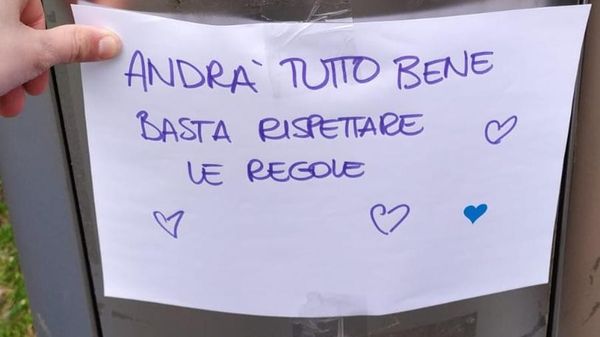 ANDRA' TUTTO BENE
BASTA RISPETTARE
LE REGOLE